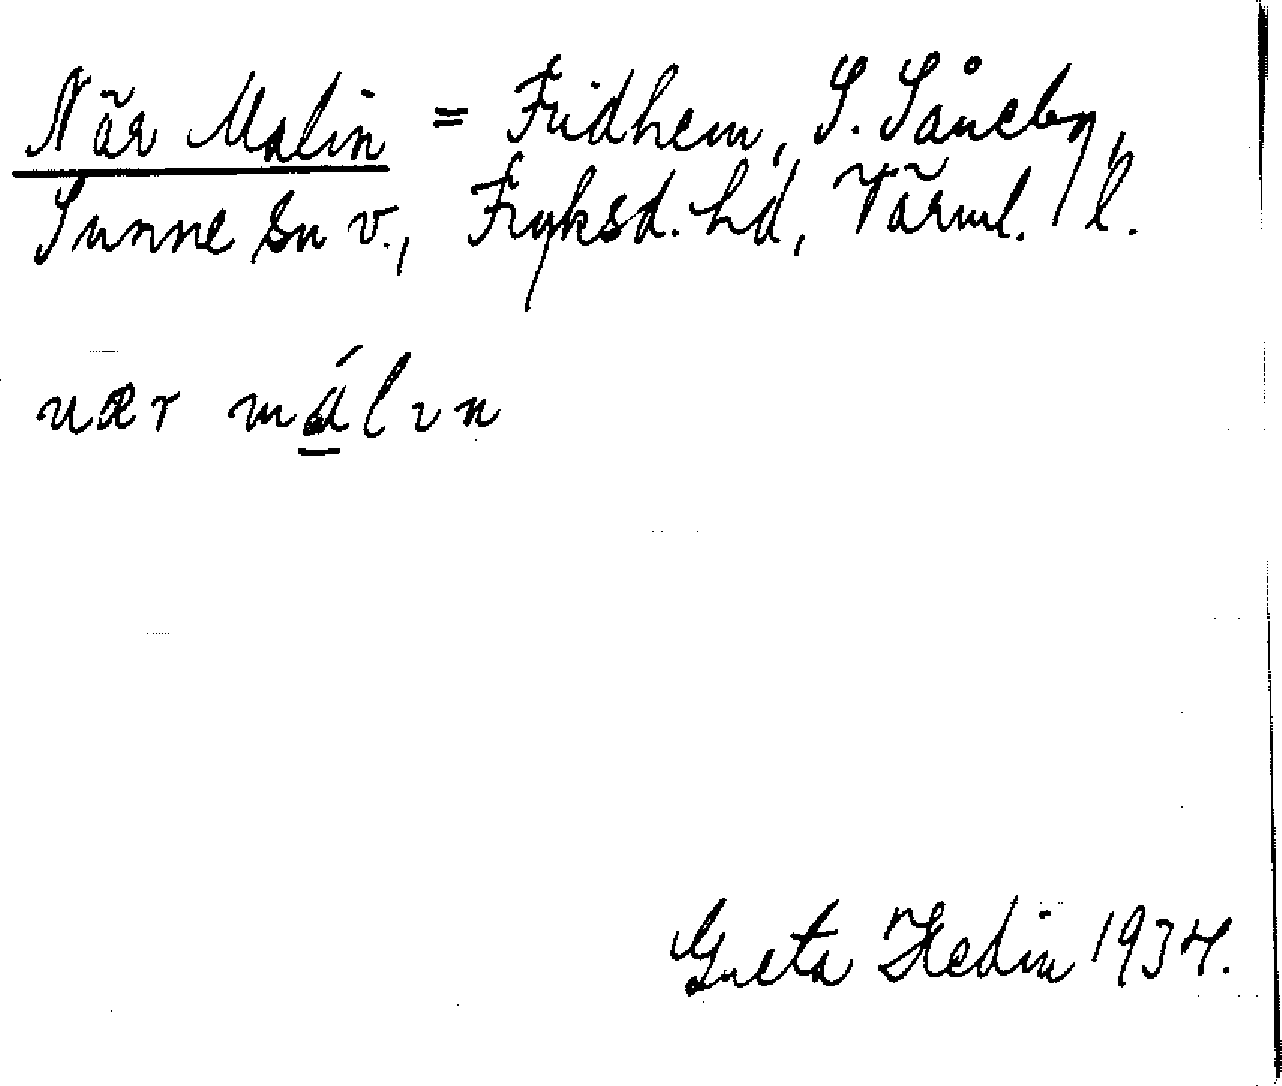 När Malin = Fridhem, S. Såneby,
Sunne sn v., Fryksd. hd, Värml. l.
nær málın
Greta Hedin 1934.